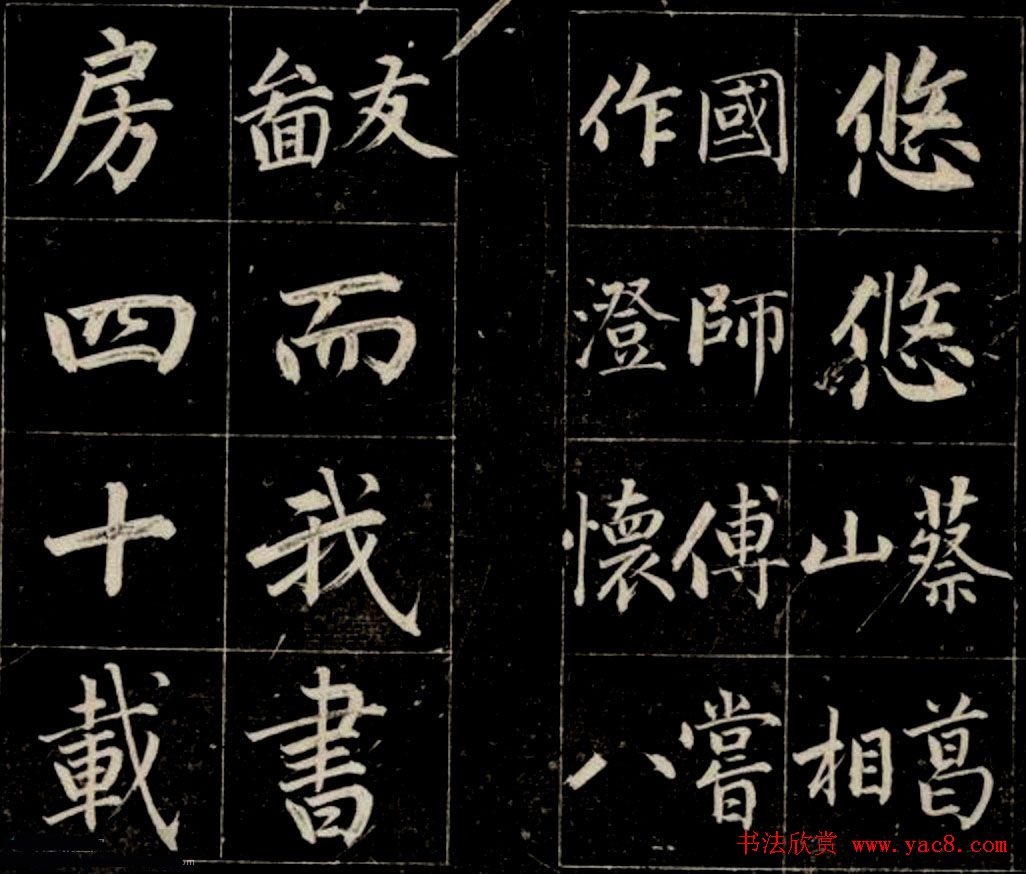 悠悠
蔡葛
山相
國師傅嘗
作澄懷八
友
啚
而我書
房四十載
书法欣赏 www.yac8.com